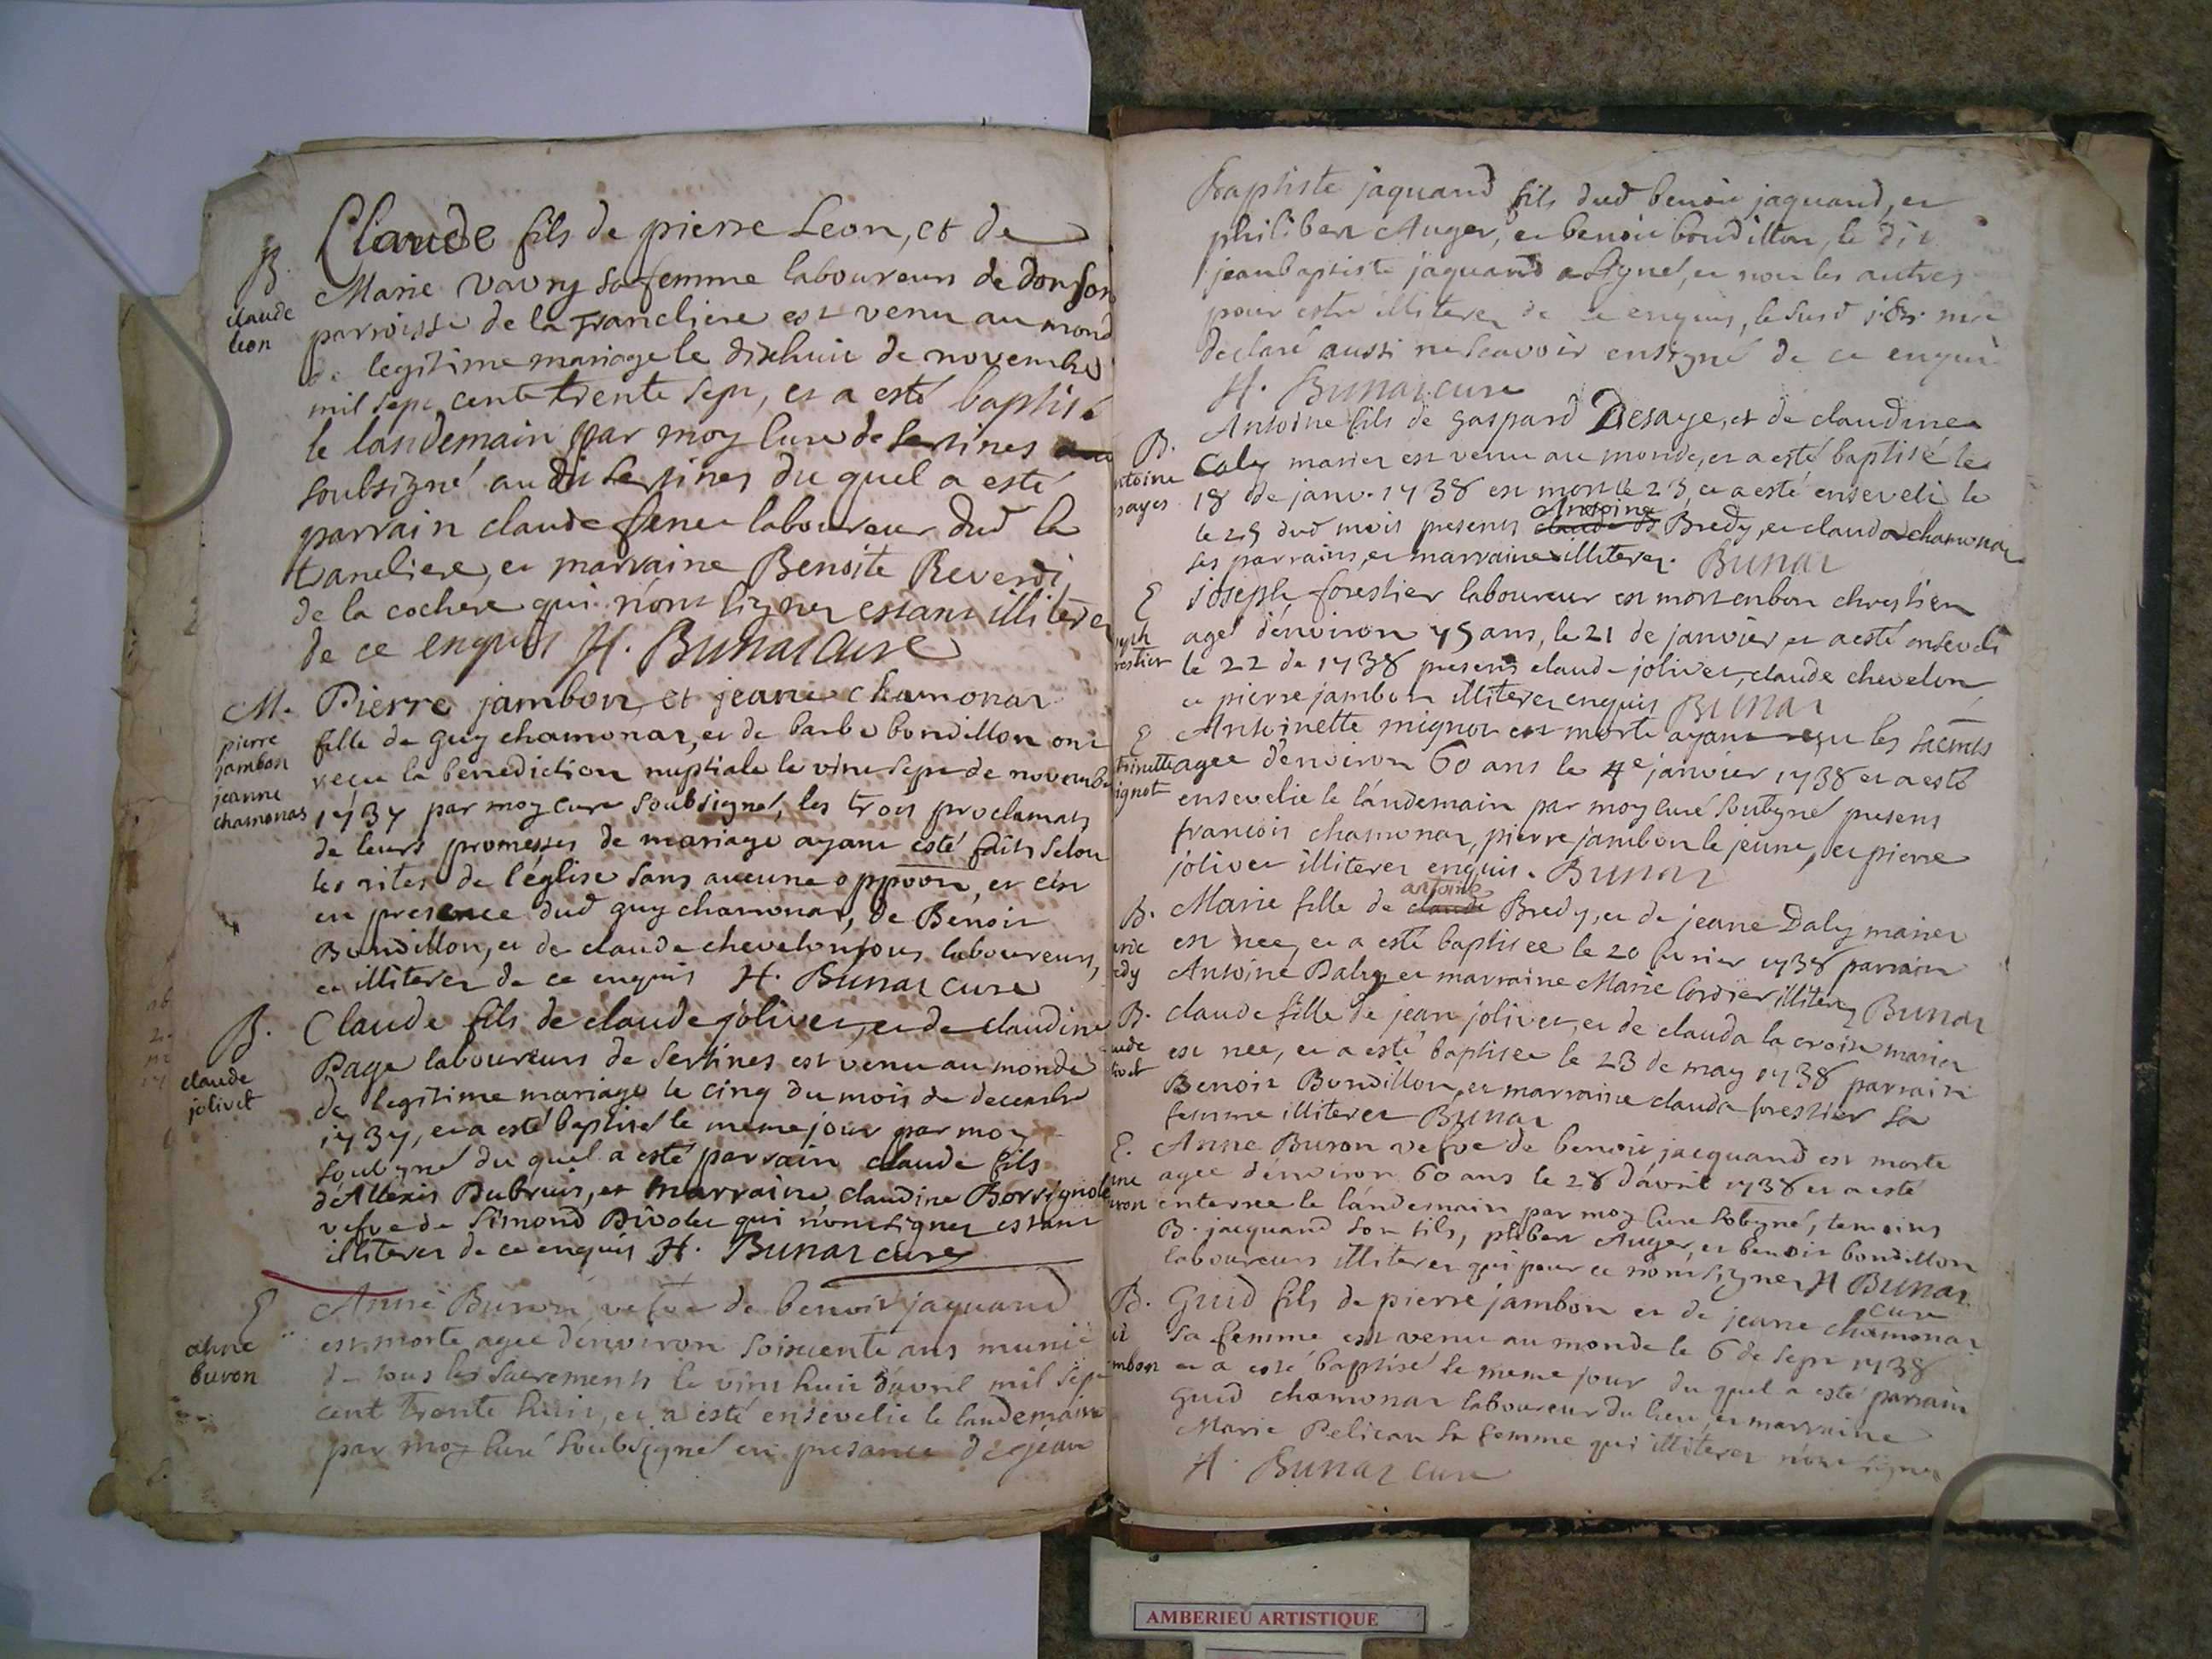 B.
claude
leon
Claude fils de pierre Leon, et de
Marie vavry sa femme laboureurs de
parroisse de la Trancliere est venu au mond
de legitime mariage le dixhuit de novembre
mil sept cents trente sept, et a esté baptisé
le landemain par moy Curé de Sertines
soubsigné audit Sertines du quel a esté
parrain claude laboureur dud la
tancliere, et marraine Benoite Reverdi
de la cochere qui n'ont signer estant illiteré
de ce enquis H. Bunat Curé
M.
pierre
jambon
jeanne
chamonas
Pierre jambon, et jeane chamonat
fille de guy chamonat, et de barbe bondillon ont
reçu la benediction nuptiale le vint sept de novembre
1737 par moy curé soubsigné, les trois proclamats
de leurs promesses de mariage ayant esté faits selon
les rites de l'église sans aucune oppoon, et cin
en presence dud guy chamonat, de Benoit
Bondillon, et de claude chevelon tous laboureurs,
et illiterez de ce enquis H. Bunat Curé
B.
claude
jolivet
Claude fils de claude jolivet, et de claudine
Page laboureurs de Sertines est venu au monde
de legitime mariage le cinq du mois de decembre
1737, et a esté baptisé le meme jour par moy
soubsigné du quel a esté parrain claude fils
d'Allexis Dubruis, et marraine claudine
vefve de Simond qui n'ont signer estant
illiterez de ce enquis H. Bunat curé
E
anne
buron
Anne Buron vefve de benoit jaquand
est morte agee d'environ soixcente ans munie
de tous les sacrements le vint huit d'avril mil sept
cent trente huit, et a esté ensevelie le landemain
par moy curé soubsigné en presance de jean
Baptiste jaquand fils dud benoit jaquand, et
philibert Auger, et benoit bondillon, le dit
jeanbaptiste jaquand a signé, et non les autres
pour estre illiterez de ce enquis, le susd
declaré aussi ne scavoir ensigné de ce enquis
H. Bunat curé
B.
ntoine
sayes
Antoine fils de gaspard Desaye, et de claudine
Caly mariez est venu au monde, et a esté baptisé le
18 de janv. 1738 est mort le 23, et a esté enseveli le
le 25 dud mois presents Antoine Bredy, et clauda chamonat
ses parrains, et marraine illiterez. Bunat
E
restier
joseph forestier laboureur est mort enbon chrestien
agé d'environ 75 ans, le 21 de janvier et a esté enseveli
le 22 de 1738 presents claude jolivet, claude chevelon,
et pierre jambon illiterez enquis Bunat
E
toinette
ignot
Antoinette mignot est morte ayant reçu les sacmts
agee d'environ 60 ans le 4e janvier 1738 et a esté
ensevelie le landemain par moy curé soubsigné presens
francois chamonat, pierre jambon le jeune, et pierre
jolivet illiterez enquis. Bunat
B.
arie
edy
Marie fille de antoine Bredy, et de jeane Daly mariez
est nee, et a esté baptisee le 20 fevrier 1738 parrain
Antoine Daly, et marraine Marie Cordier illiterez Bunat
B.
aude
livet
claude fille de jean jolivet, et de clauda la croix mariez
est nee, et a esté baptisee le 23 de may 1738 parrain
Benoit Bondillon, et marraine clauda forestier sa
femme illiterez Bunat
E.
nne
uron
Anne Buron vefve de benoit jacquand est morte
agee d'environ 60 ans le 28 d'avril 1738 et a esté
enterree le landemain par moy Curé sobsigné, temoins
B. jacquand son fils, philbert Auger, et benoit bondillon
laboureurs illiterez qui pour ce n'ont signer H Bunat
curé
B.
id
mbon
Guid fils de pierre jambon et de jeane chamonat
sa femme est venu au monde le 6 de sept 1738
et a esté baptisé le meme jour du quel a esté parrain
Guid chamonat laboureur du lieu, et marraine
Marie Pelican sa femme qui illiterez n'ont signer
H. Bunat curé
AMBERIEU ARTISTIQUE